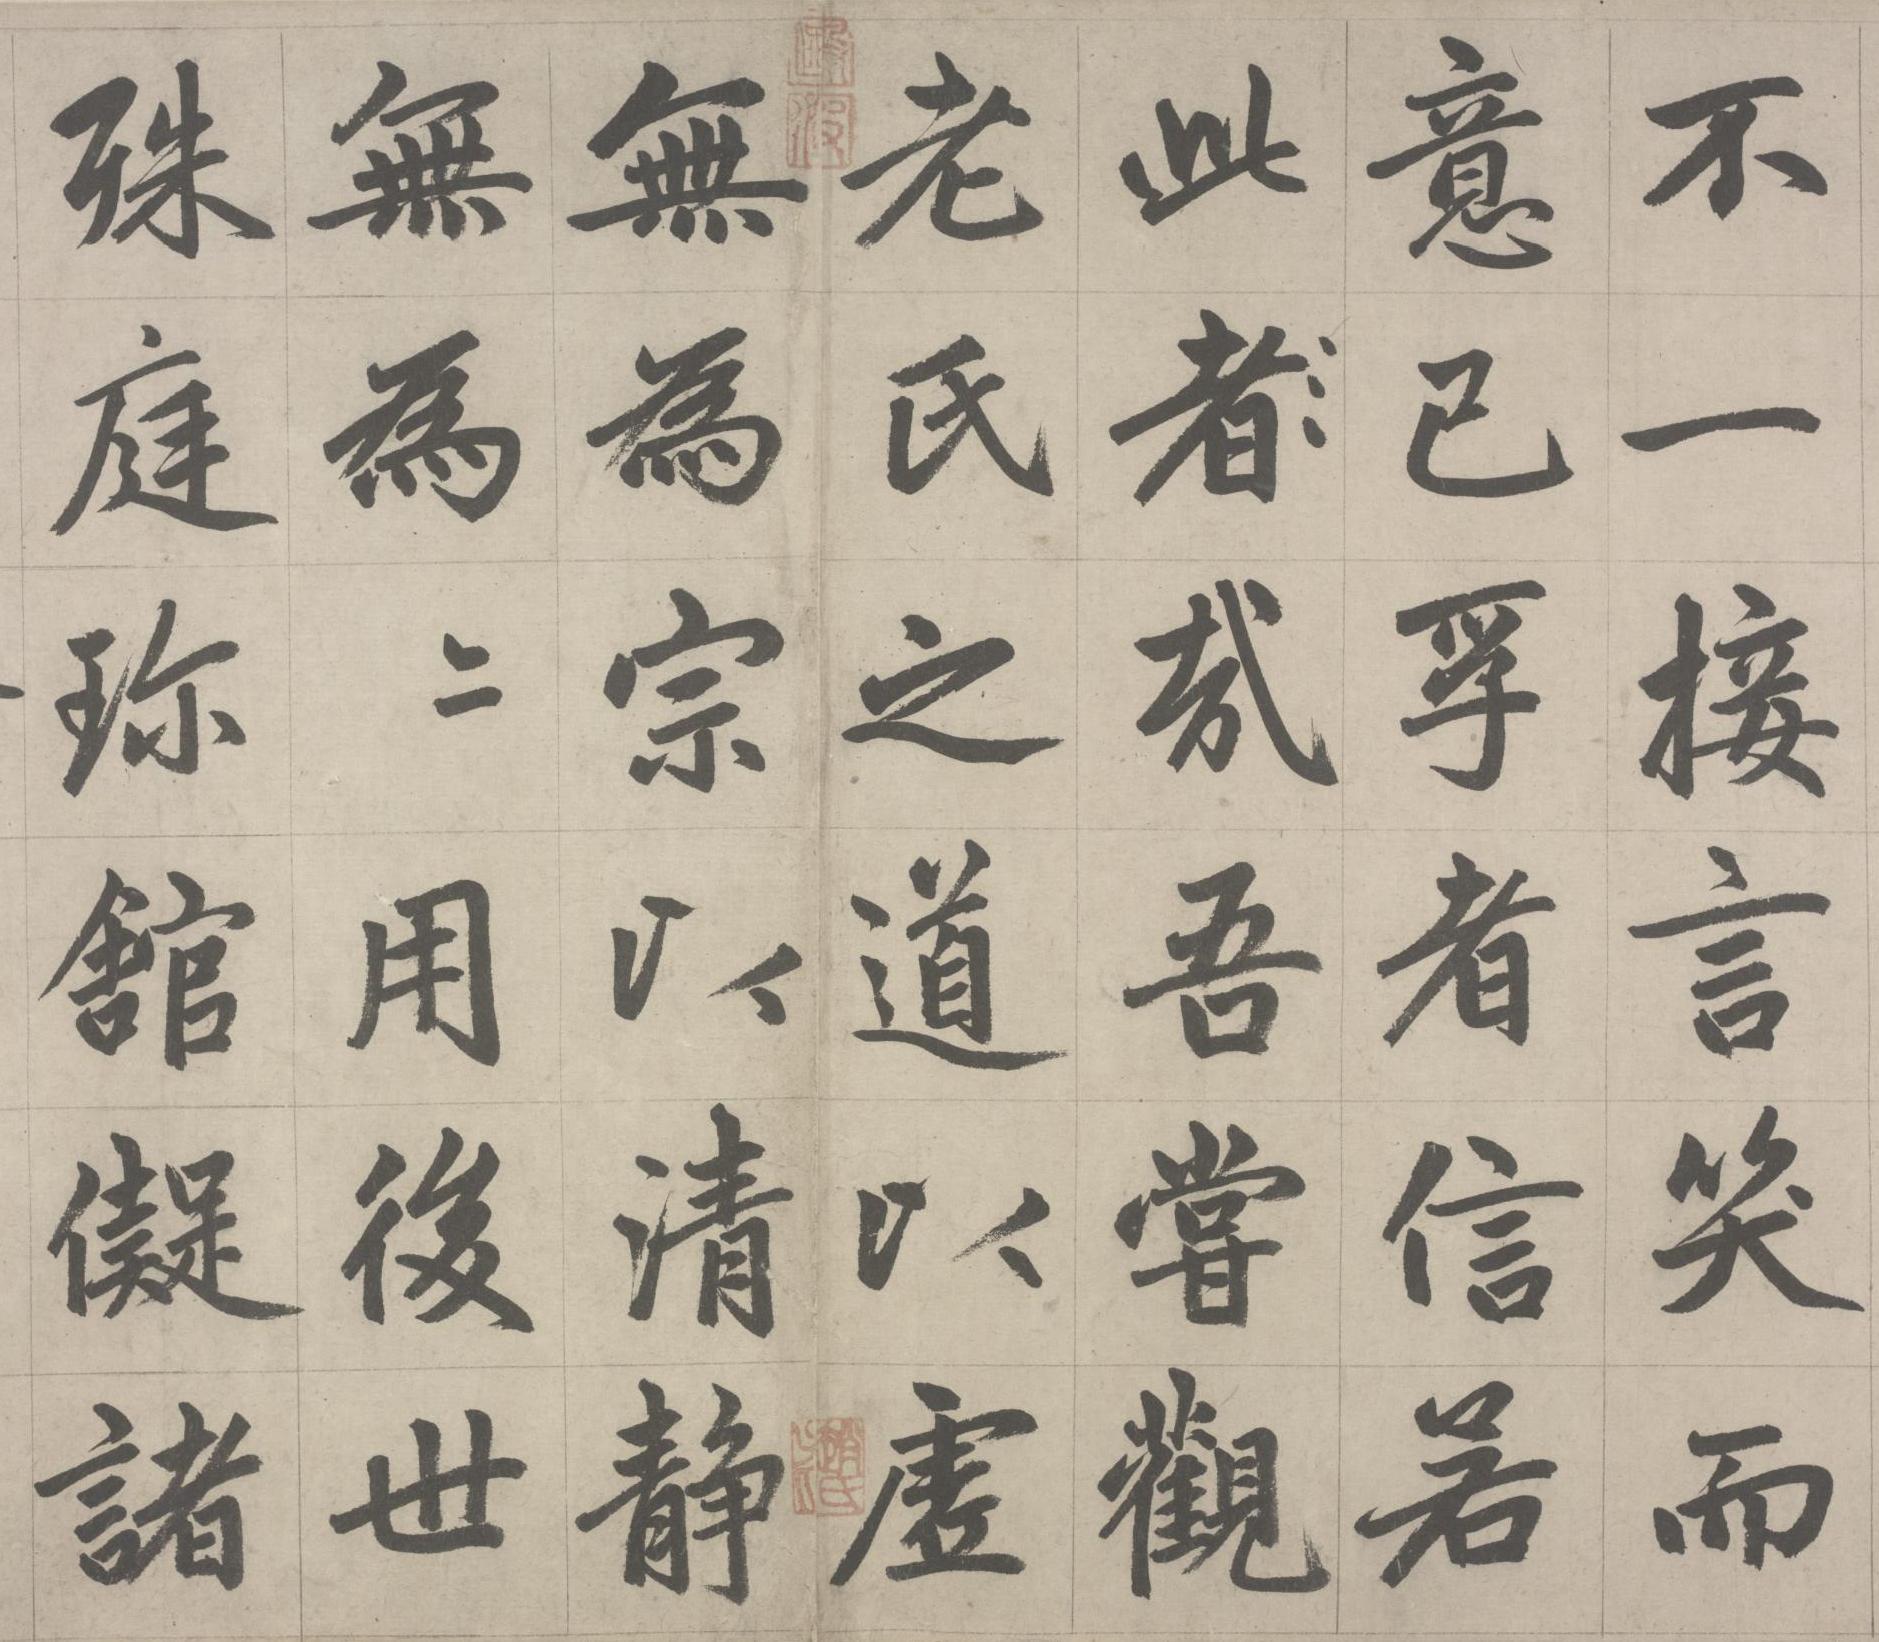 不一接言笑而
意已孚者信若
此者哉吾嘗觀
老氏之道以虛
無為宗以清静
無為〻用後世
殊庭珎舘儗諸
趙氏